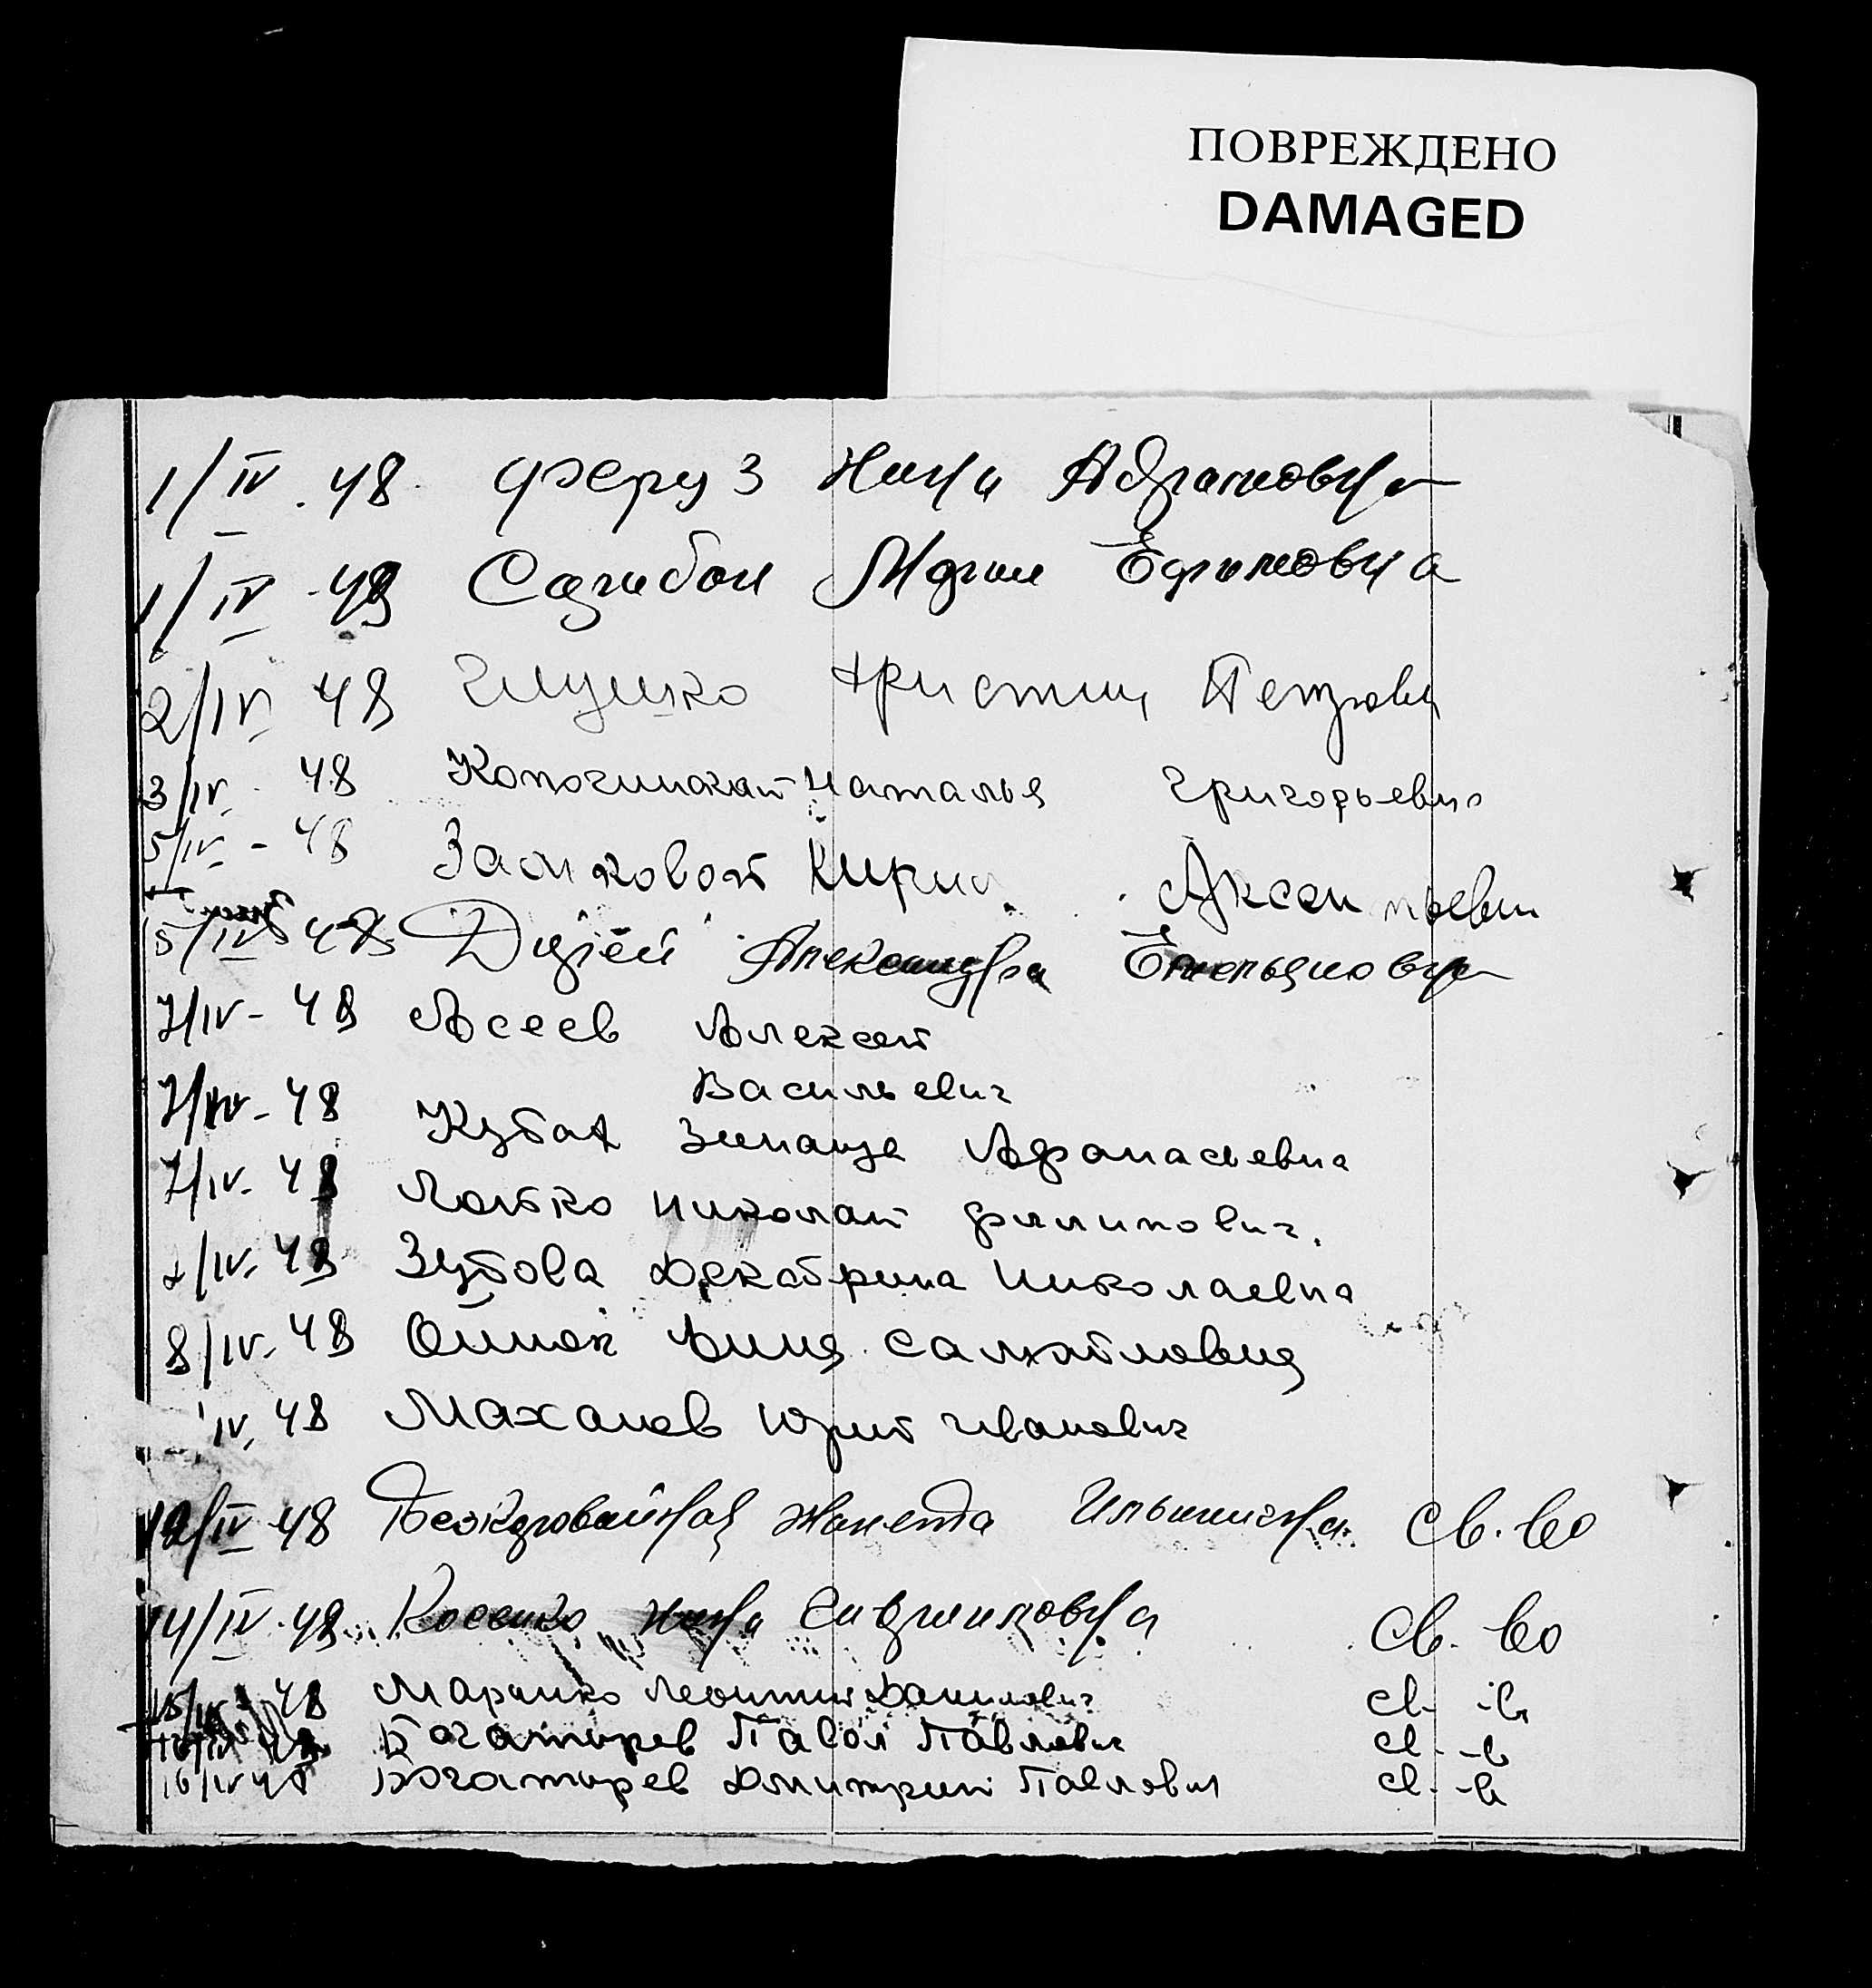 ПОВРЕЖДЕНО
DAMAGED
1/IV. 48. Феруз Нина Абрамовна
1/IV - 48 Мария Ефимовна
2/IV 48 Глушко Христин Петровн
3/IV. 48 Наталья Григорьевна
5/IV - 48 Замковой Кирил. Аксентьевич
5/IV 48 Александра Емельяновна
7/IV - 48 Асеев Алексей
Васильевич
7/IV - 48 Кубах Зинаида Афанасьевна
7/IV - 48 Лойко Николай Филипович.
IV. 48 Зубова Декабрина Николаевна
8/IV. 48 Анна
IV. 48 Маханов Юрий Иванович
12/IV 48 Жанета Ильинична св. во
14/IV. 48 Косенко Нина св. во
15/IV 48 Маринко Леонтий Данилович св -в
16/IV 48 Богатырев Павел Павлович св. -в
16/IV 48 Богатырев Дмитрий Павлович св. -в